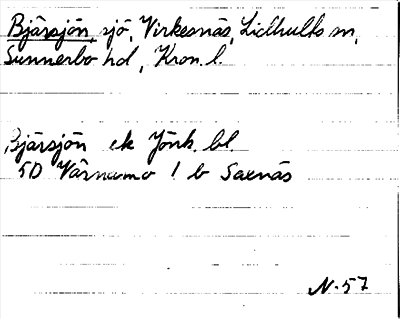 Bjärsjön, sjö, Virkesnäs, Lidhults sn,
Sunnerbo hd, Kron. l.
Bjärsjön ek Jönk. bl
5D Värnamo 1 b Saxnäs
N-57